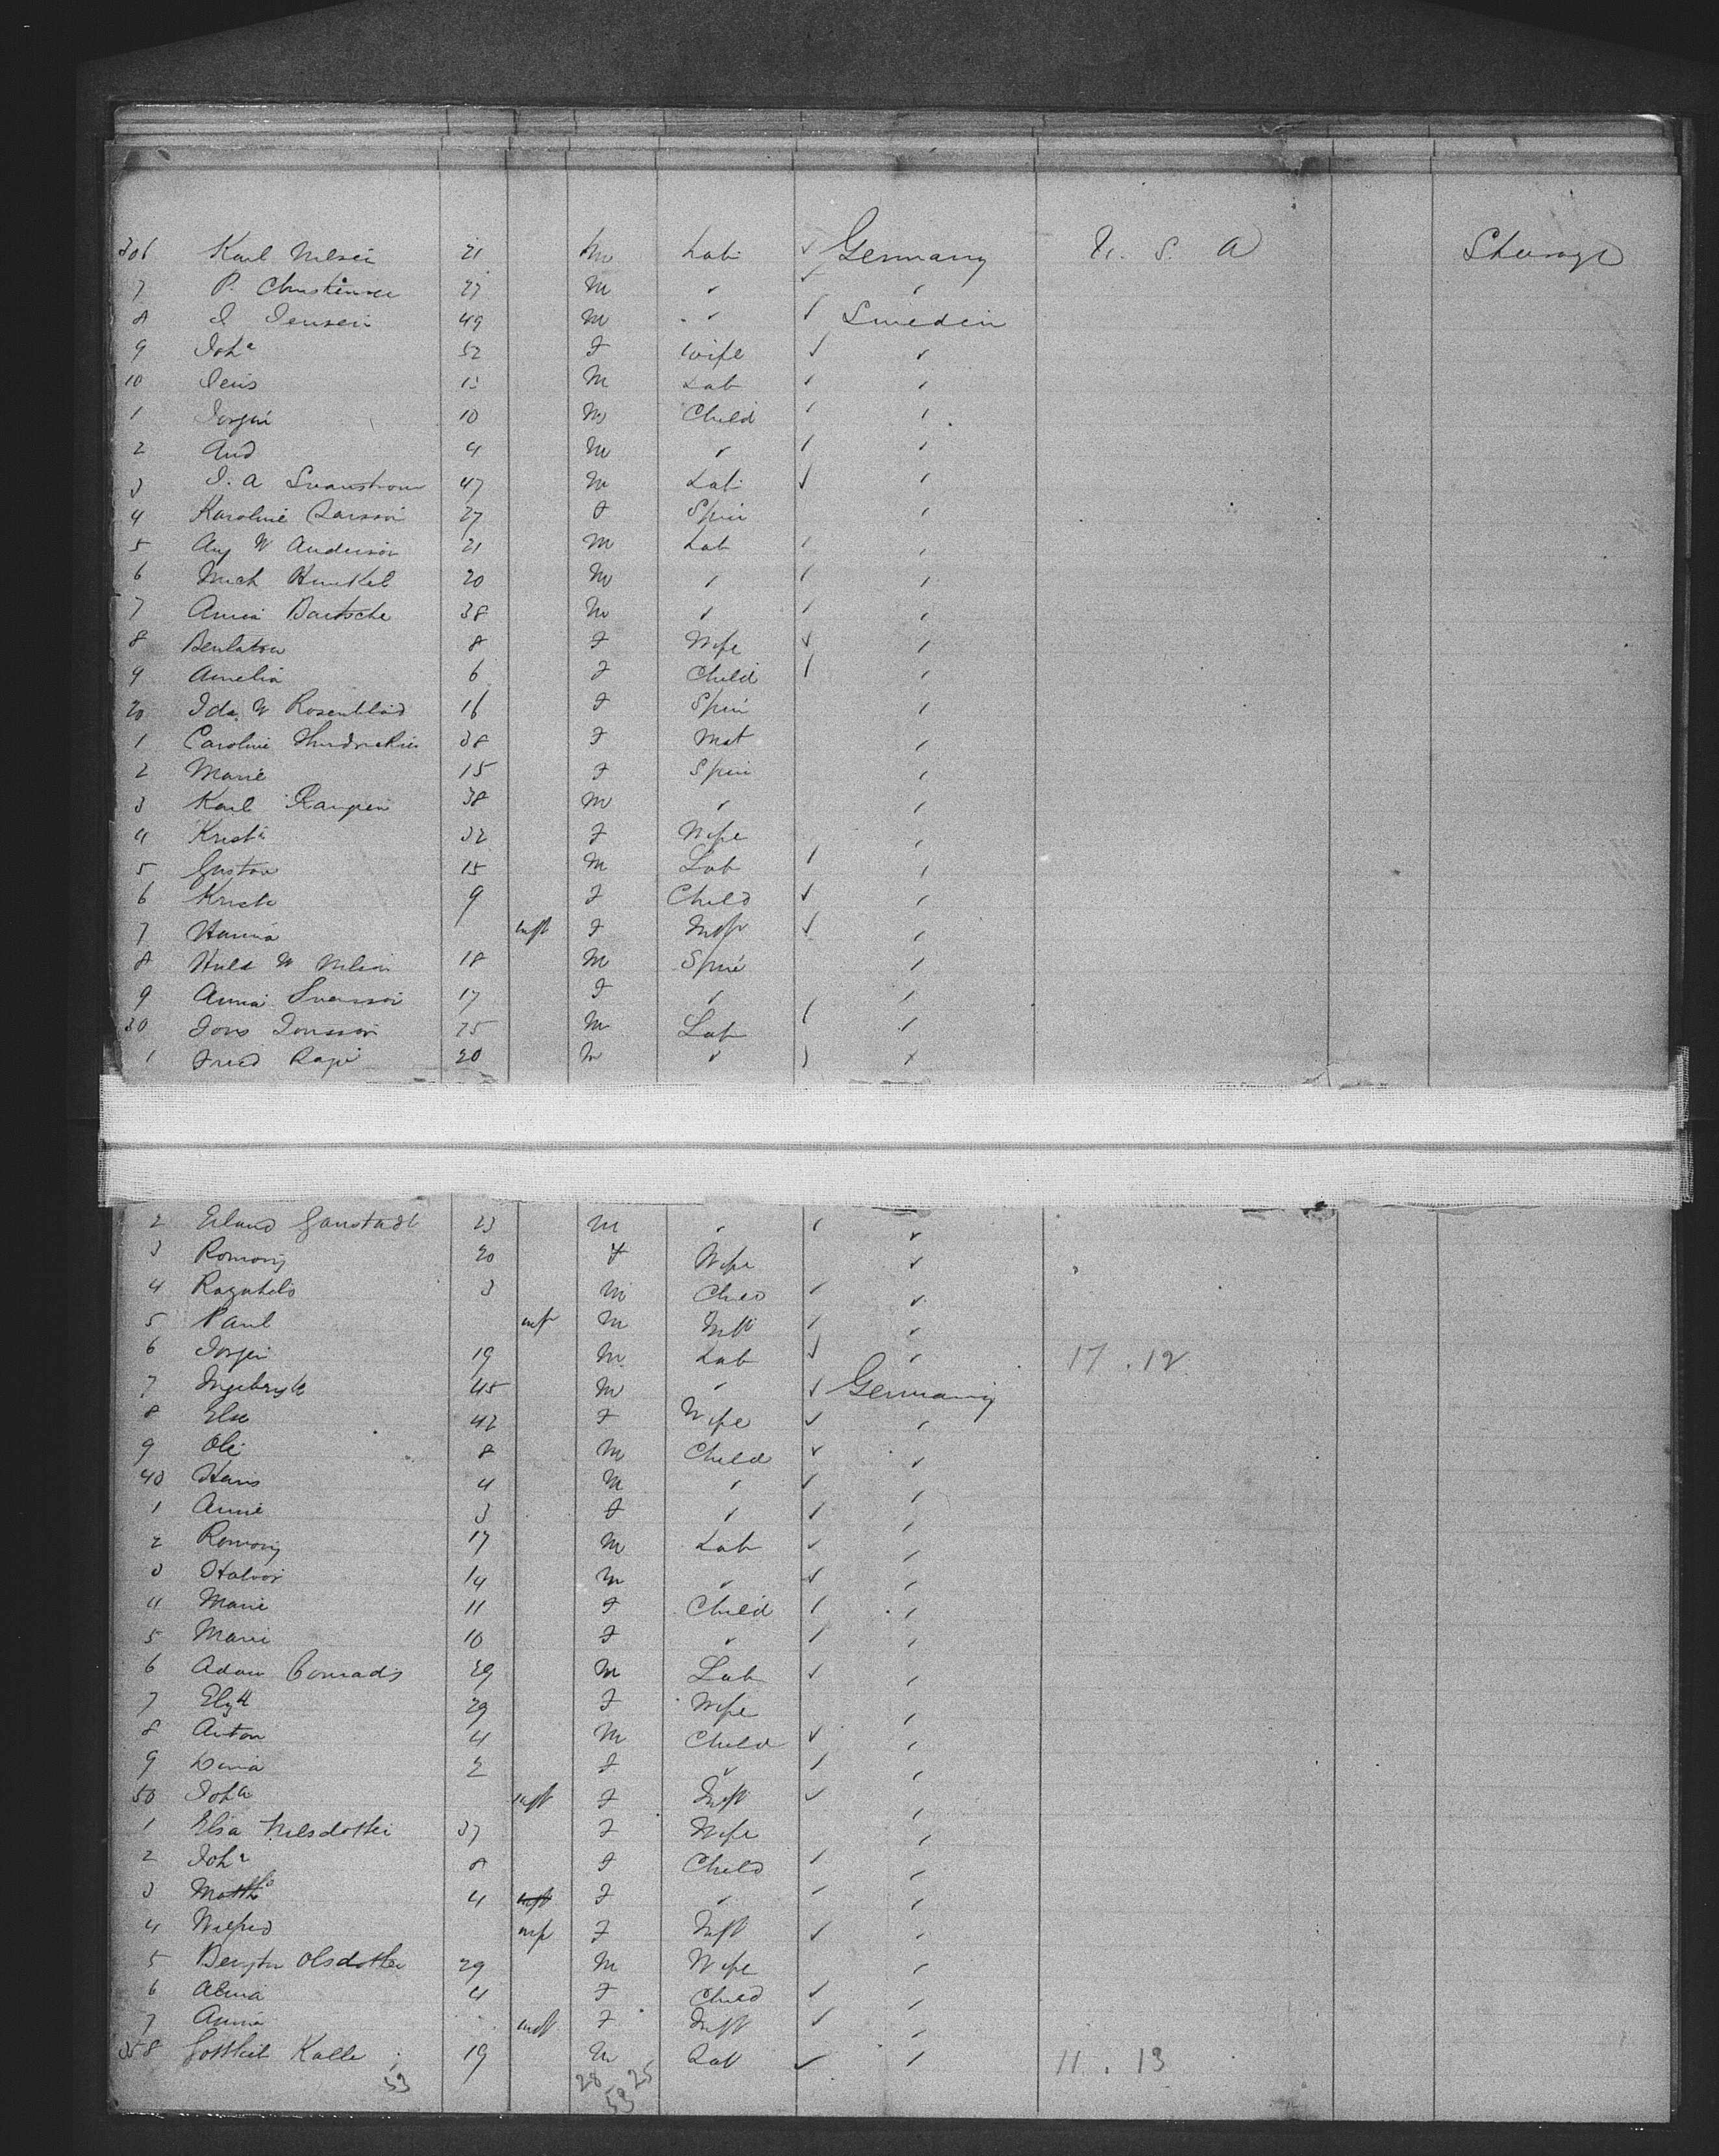 306 Karl Nilsen 21 M Lab ✓ Germany U. S. A Steerage
7 P. Christensen 27 M " "
8 J Jensen 49 M " Sweden
9 Joha 52 F Wife "
10 Jens 13 M Lab "
1 Jorgen 10 M Child "
2 And 4 M " "
3 J. A Svanstrom 47 M Lab "
4 Karoline Larsson 27 F Spin "
5 Aug W Anderson 21 M Lab "
6 Mich 20 M " "
7 Anna Bartsche 38 M " "
8 8 F Wife "
9 Amelia 6 F Child "
20 Ida W Rosenblad 16 F Spin "
1 Caroline 38 F Mat "
2 Marie 15 F Spin "
3 Karl 38 M " "
4 Krista 32 F Wife "
5 Gustav 15 M Lab "
6 Krista 9 F Child "
7 Hanna inft F Inft "
8 Huld W Nilson 18 M Spin "
9 Anna Svensson 17 F " "
30 Jons Jonsson 25 M Lab "
1 Fred 20 M " "
2 Erland Ganstadt 23 M " "
3 Romony 20 F Wife "
4 3 M Child "
5 Paul inft M Inft "
6 Jorgen 19 M Lab " 17 . 12
7 45 M " Germany
8 Else 42 F Wife "
9 Ole 8 M Child "
40 Hans 4 M " "
1 Anne 3 F " "
2 Romony 17 M Lab "
3 Halvor 14 M " "
4 Marie 11 F Child "
5 Marie 10 F " "
6 Adam Conrads 29 M Lab "
7 Elzth 29 F Wife "
8 Anton 4 M Child "
9 2 F " "
50 Joha inft F Inft "
1 Elsa Nilsdotter 37 F Wife "
2 Joha 8 F Child "
3 4 inft F " "
4 Wilfred inft F Inft "
5 Olsdotter 29 M Wife "
6 Alma 4 F Child "
7 Anna inft F Inft "
358 Gottlieb Kalle 19 M Lab " 11 . 13
53 28 25
53